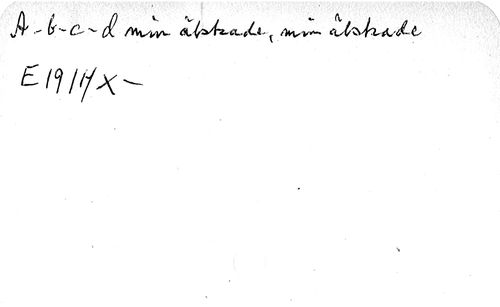 A-b-c-d min älskade, min älskade
E 19/11/X -